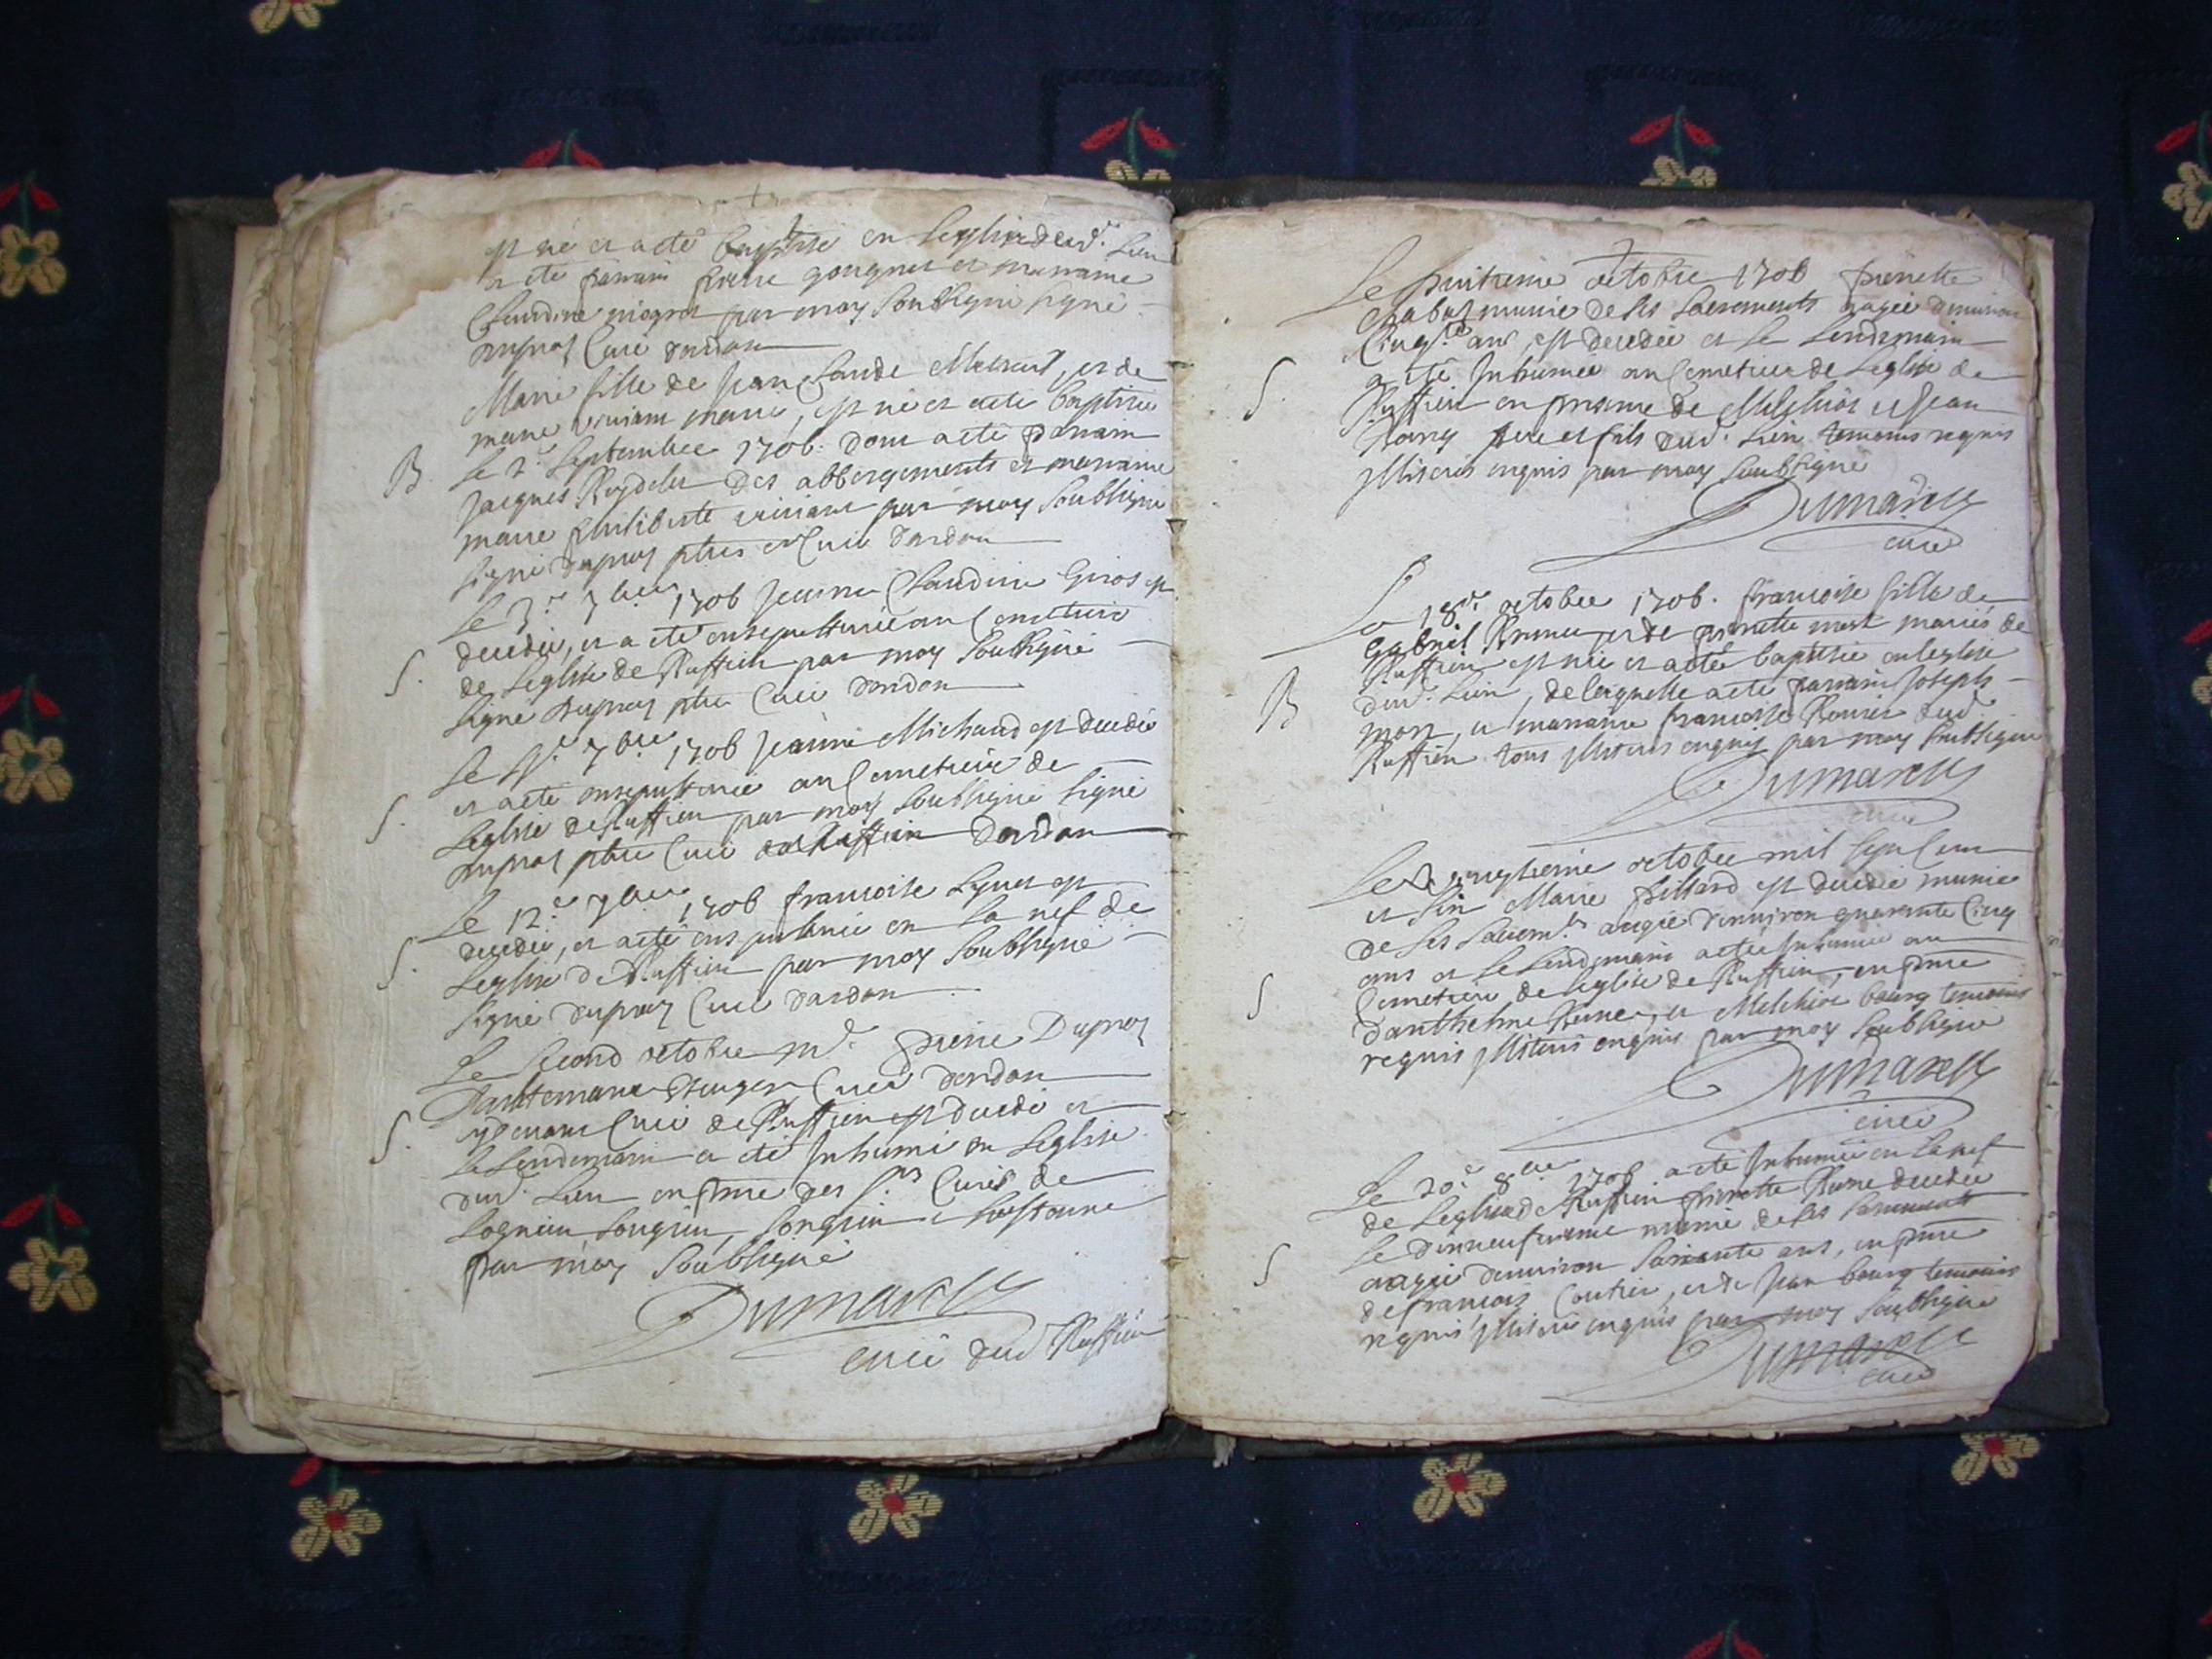 est né et a eté baptisé en Leglise dud. Lieu
a eté parrain pierre gougnet et marraine
Claudine par moy Soubsigné signé
dupraz Curé dardon
Marie fille de Jean Claude et de
marie mariés, est née et a eté baptisée
B. le 2e Septembre 1706. dont a eté parrain
Jacques des abbergements et marraine
marie philiberte par moy Soubsigné
signé dupraz ptre et Curé dardon
Le 3e 7bre 1706 Jeanne Claudine Giros est
decedée, et a eté ensepulturée au Cemetiere
S. de Leglise de Ruffieu par moy Soubsigné
signé dupraz ptre Curé dardon
Le 7bre 1706 Jeanne Michaud est decedée
et a eté ensepulturée au Cemetiere de
S. Leglise de Ruffieu par moy Soubsigné signé
dupraz ptre Curé de Ruffieu dardon
Le 12e 7bre 1706 francoise est
decedée, et a eté ensepulturée en La nef de
S. Leglise de Ruffieu par moy Soubsigné
signé dupraz Curé dardon
Le second octobre pierre Dupraz
Curé dardon
Curé de Ruffieu est decedé et
S. le Lendemain a eté Inhumé en Leglise
dud. Lieu en pnce des Srs Curés de
Lognieu Songieu,
par moy Soubsigné
Dumarest
curé dud Ruffieu
Le huitieme octobre 1706 pierrette
munie de Ses Sacrements aagée denviron
Cinqte ans, est decedée et le Lendemain
S. a eté Inhumée au Cemetiere de Leglise de
Ruffieu en presence de Melchior et Jean
pere et fils dud. Lieu temoins requis
Illiterés enquis par moy Soubsigné
Dumarest
curé
Le 18e octobre 1706. francoise fille de
Gabriel et de pierrette mariés de
Ruffieu est née et a eté baptisée en leglise
B dud. Lieu, de laquelle a eté parrain Joseph
et marraine francoise dud
Ruffieu tous Illiterés enquis par moy Soubsigné
Dumarest
curé
Le vingtieme octobre mil Sept Cent
et Six Marie est decedée munie
de Ses Sacremts aagée denviron quarante Cinq
ans et le Lendemain a eté Inhumée au
S Cemetiere de Leglise de Ruffieu, en pnce
danthelme et Melchior bourg temoins
requis Illiterés enquis par moy Soubsigné
Dumarest
curé
Le 20e 8bre 1706 a eté Inhumée en La nef
de Leglise de Ruffieu pierrette decedée
le dixneufvieme munie de Ses Sacrements
S aagée denviron Soixante ans, en pnce
de francois et de Jean bourg temoins
requis Illiterés enquis par moy Soubsigné
Dumarest
curé